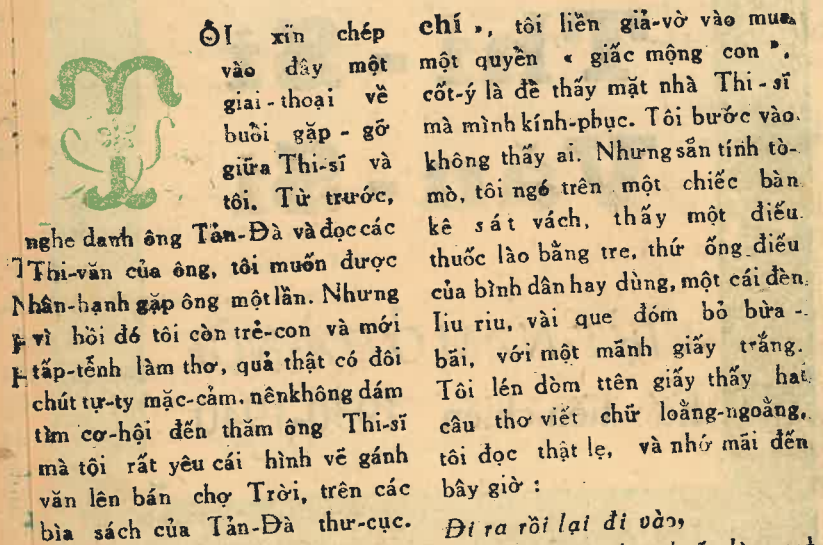 TÔI xin chép
vào đây một
giai-thoại về
buổi gặp-gỡ
giữa Thi-sĩ và
tôi. Từ trước,
nghe danh ông Tản-Đà và đọc các
Thi-văn của ông, tôi muốn được
hân-hạnh gặp ông một lần. Nhưng
vì hồi đó tôi còn trẻ-con và mới
tấp-tễnh làm thơ, quả thật có đôi
chút tự-ty mặc-cảm. nên không dám
tìm cơ-hội đến thăm ông Thi-sĩ
mà tôi rất yêu cái hình vẽ gánh
văn lên bán chợ Trời, trên các
bìa sách của Tản-Đà thư-cục.
chí », tôi liền giả-vờ vào mua
một quyền « giấc mộng con ».
cốt-ý là để thấy mặt nhà Thi-sĩ
mà mình kính-phục. Tôi bước vào
không thấy ai. Nhưng sẵn tính tò-
mò, tôi ngó trên một chiếc bàn
kê sát vách, thấy một điếu
thuốc lào bằng tre, thứ ống điếu
của bình dân hay dùng, một cái đèn
liu riu, vài que đóm bỏ bừa-
bãi, với một mãnh giấy trắng.
Tôi lén dòm ttên giấy thấy hai
câu thơ viết chữ loằng-ngoằng,
tôi đọc thật lẹ, và nhớ mãi đến
bây giờ :
Đi ra rồi lại đi vào,